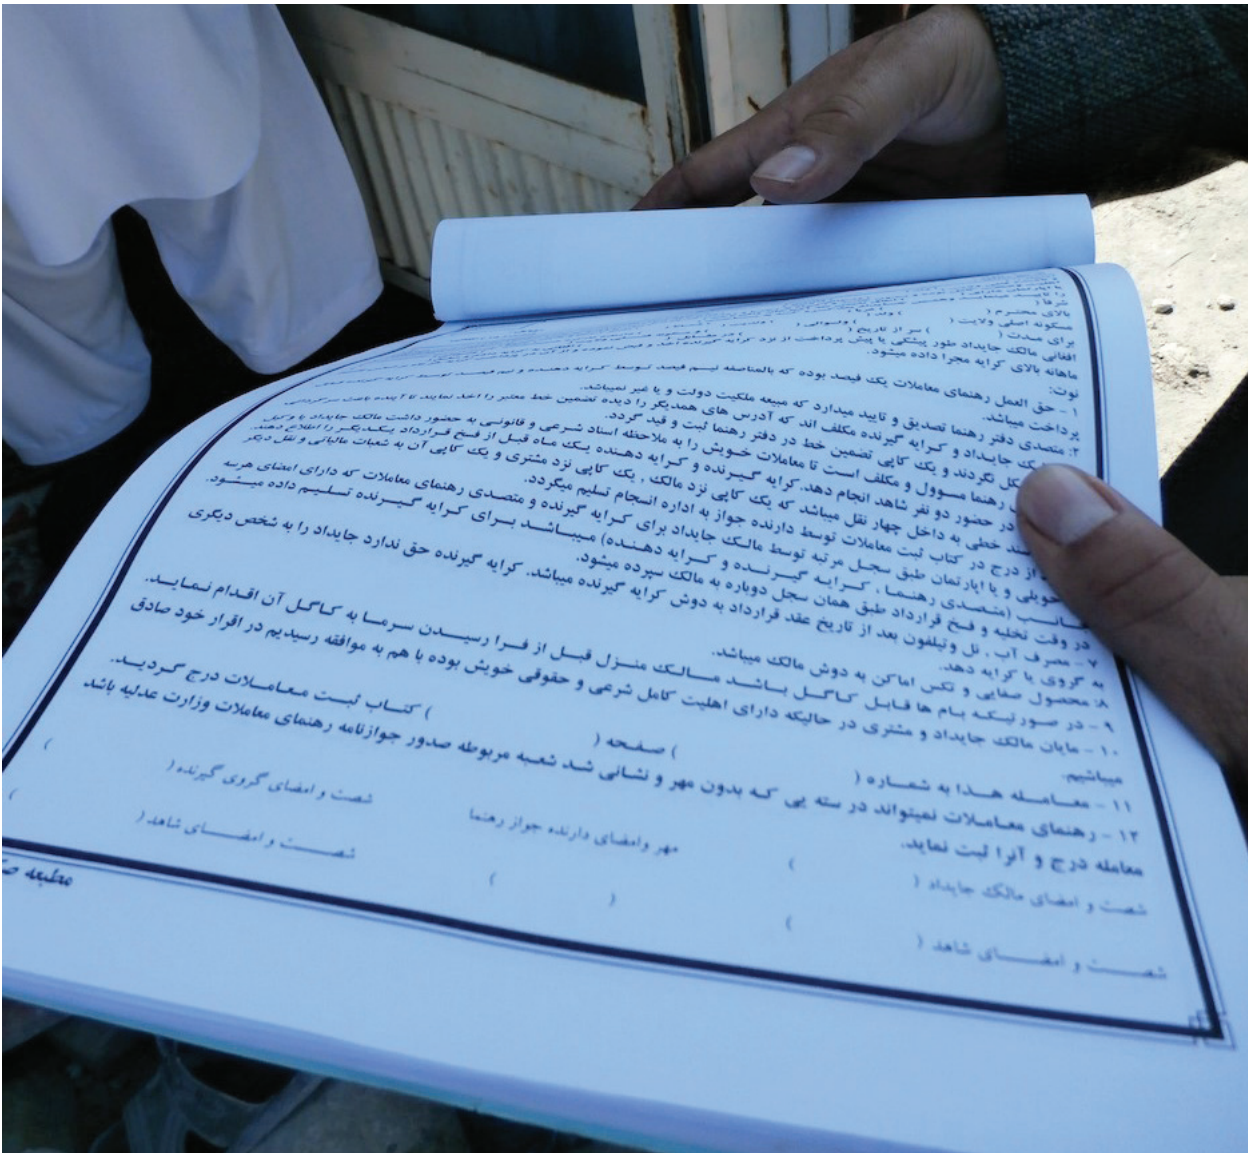 بالای محترم (
مسکونه اصلی ولایت (
برای مدت ( ) سر از تاریخ (
افغانی مالک جایداد طور پیشکی یا پیش پرداخت از نزد کرایه گیرنده اخذ و
ماهانه بالای کرایه مجرا داده میشود.
نوت:
۱ - حق العمل رهنمای معاملات یک فیصد بوده که بالمناصفه نیم فیصد توسط کرایه دهنده و نیم فیصد توسط کرایه گیرنده
پرداخت میباشد.
۲: متصدی دفتر رهنما تصدیق و تایید میدارد که مبیعه ملکیت دولت و یا غیر نمیباشد.
جایداد و کرایه گیرنده مکلف اند که آدرس های همدیگر را دیده تضمین خط معتبر را اخذ نمایند تا آینده باعث
نگردند و یک کاپی تضمین خط در دفتر رهنما ثبت و قید گردد.
رهنما مسوول و مکلف است تا معاملات خویش را به ملاحظه اسناد شرعی و قانونی به حضور داشت مالک جایداد یا وکیل
در حضور دو نفر شاهد انجام دهد. کرایه گیرنده و کرایه دهنده یک ماه قبل از فسخ قرارداد یکدیگر را اطلاع دهند.
خطی به داخل چهار نقل میباشد که یک کاپی نزد مالک , یک کاپی نزد مشتری و یک کاپی آن به شعبات مالیاتی و نقل دیگر
از درج در کتاب ثبت معاملات توسط دارنده جواز به اداره انسجام تسلیم میگردد.
و یا اپارتمان طبق سجل مرتبه توسط مالک جایداد برای کرایه گیرنده و متصدی رهنمای معاملات که دارای امضای هرسه
(متصدی رهنما , کرایه گیرنده و کرایه دهنده) میباشد برای کرایه گیرنده تسلیم داده میشود.
در وقت تخلیه و فسخ قرارداد طبق همان سجل دوباره به مالک سپرده میشود.
۷ - مصرف آب , نل وتیلفون بعد از تاریخ عقد قرارداد به دوش کرایه گیرنده میباشد. کرایه گیرنده حق ندارد جایداد را به شخص دیگری
به گروی یا کرایه دهد.
۸: محصول صفایی و تکس اماکن به دوش مالک میباشد.
۹ - در صورتیکه بام ها قابل کاگل باشد مالک منزل قبل از فرا رسیدن سرما به کاگل آن اقدام نماید.
۱۰ - مایان مالک جایداد و مشتری در حالیکه دارای اهلیت کامل شرعی و حقوقی خویش بوده با هم به موافقه رسیدیم در اقرار خود صادق
میباشیم.
۱۱ - معامله هذا به شماره ( ) صفحه ( ) کتاب ثبت معاملات درج گردید.
۱۲ - رهنمای معاملات نمیتواند در سته یی که بدون مهر و نشانی شد شعبه مربوطه صدور جوازنامه رهنمای معاملات وزارت عدلیه باشد
معامله درج و آنرا ثبت نماید.
شصت و امضای مالک جایداد ( ) مهر وامضای دارنده جواز رهنما شصت و امضای گروی گیرنده ( )
شصت و امضای شاهد ( ) ( ) شصت و امضای شاهد ( )
مطبعه